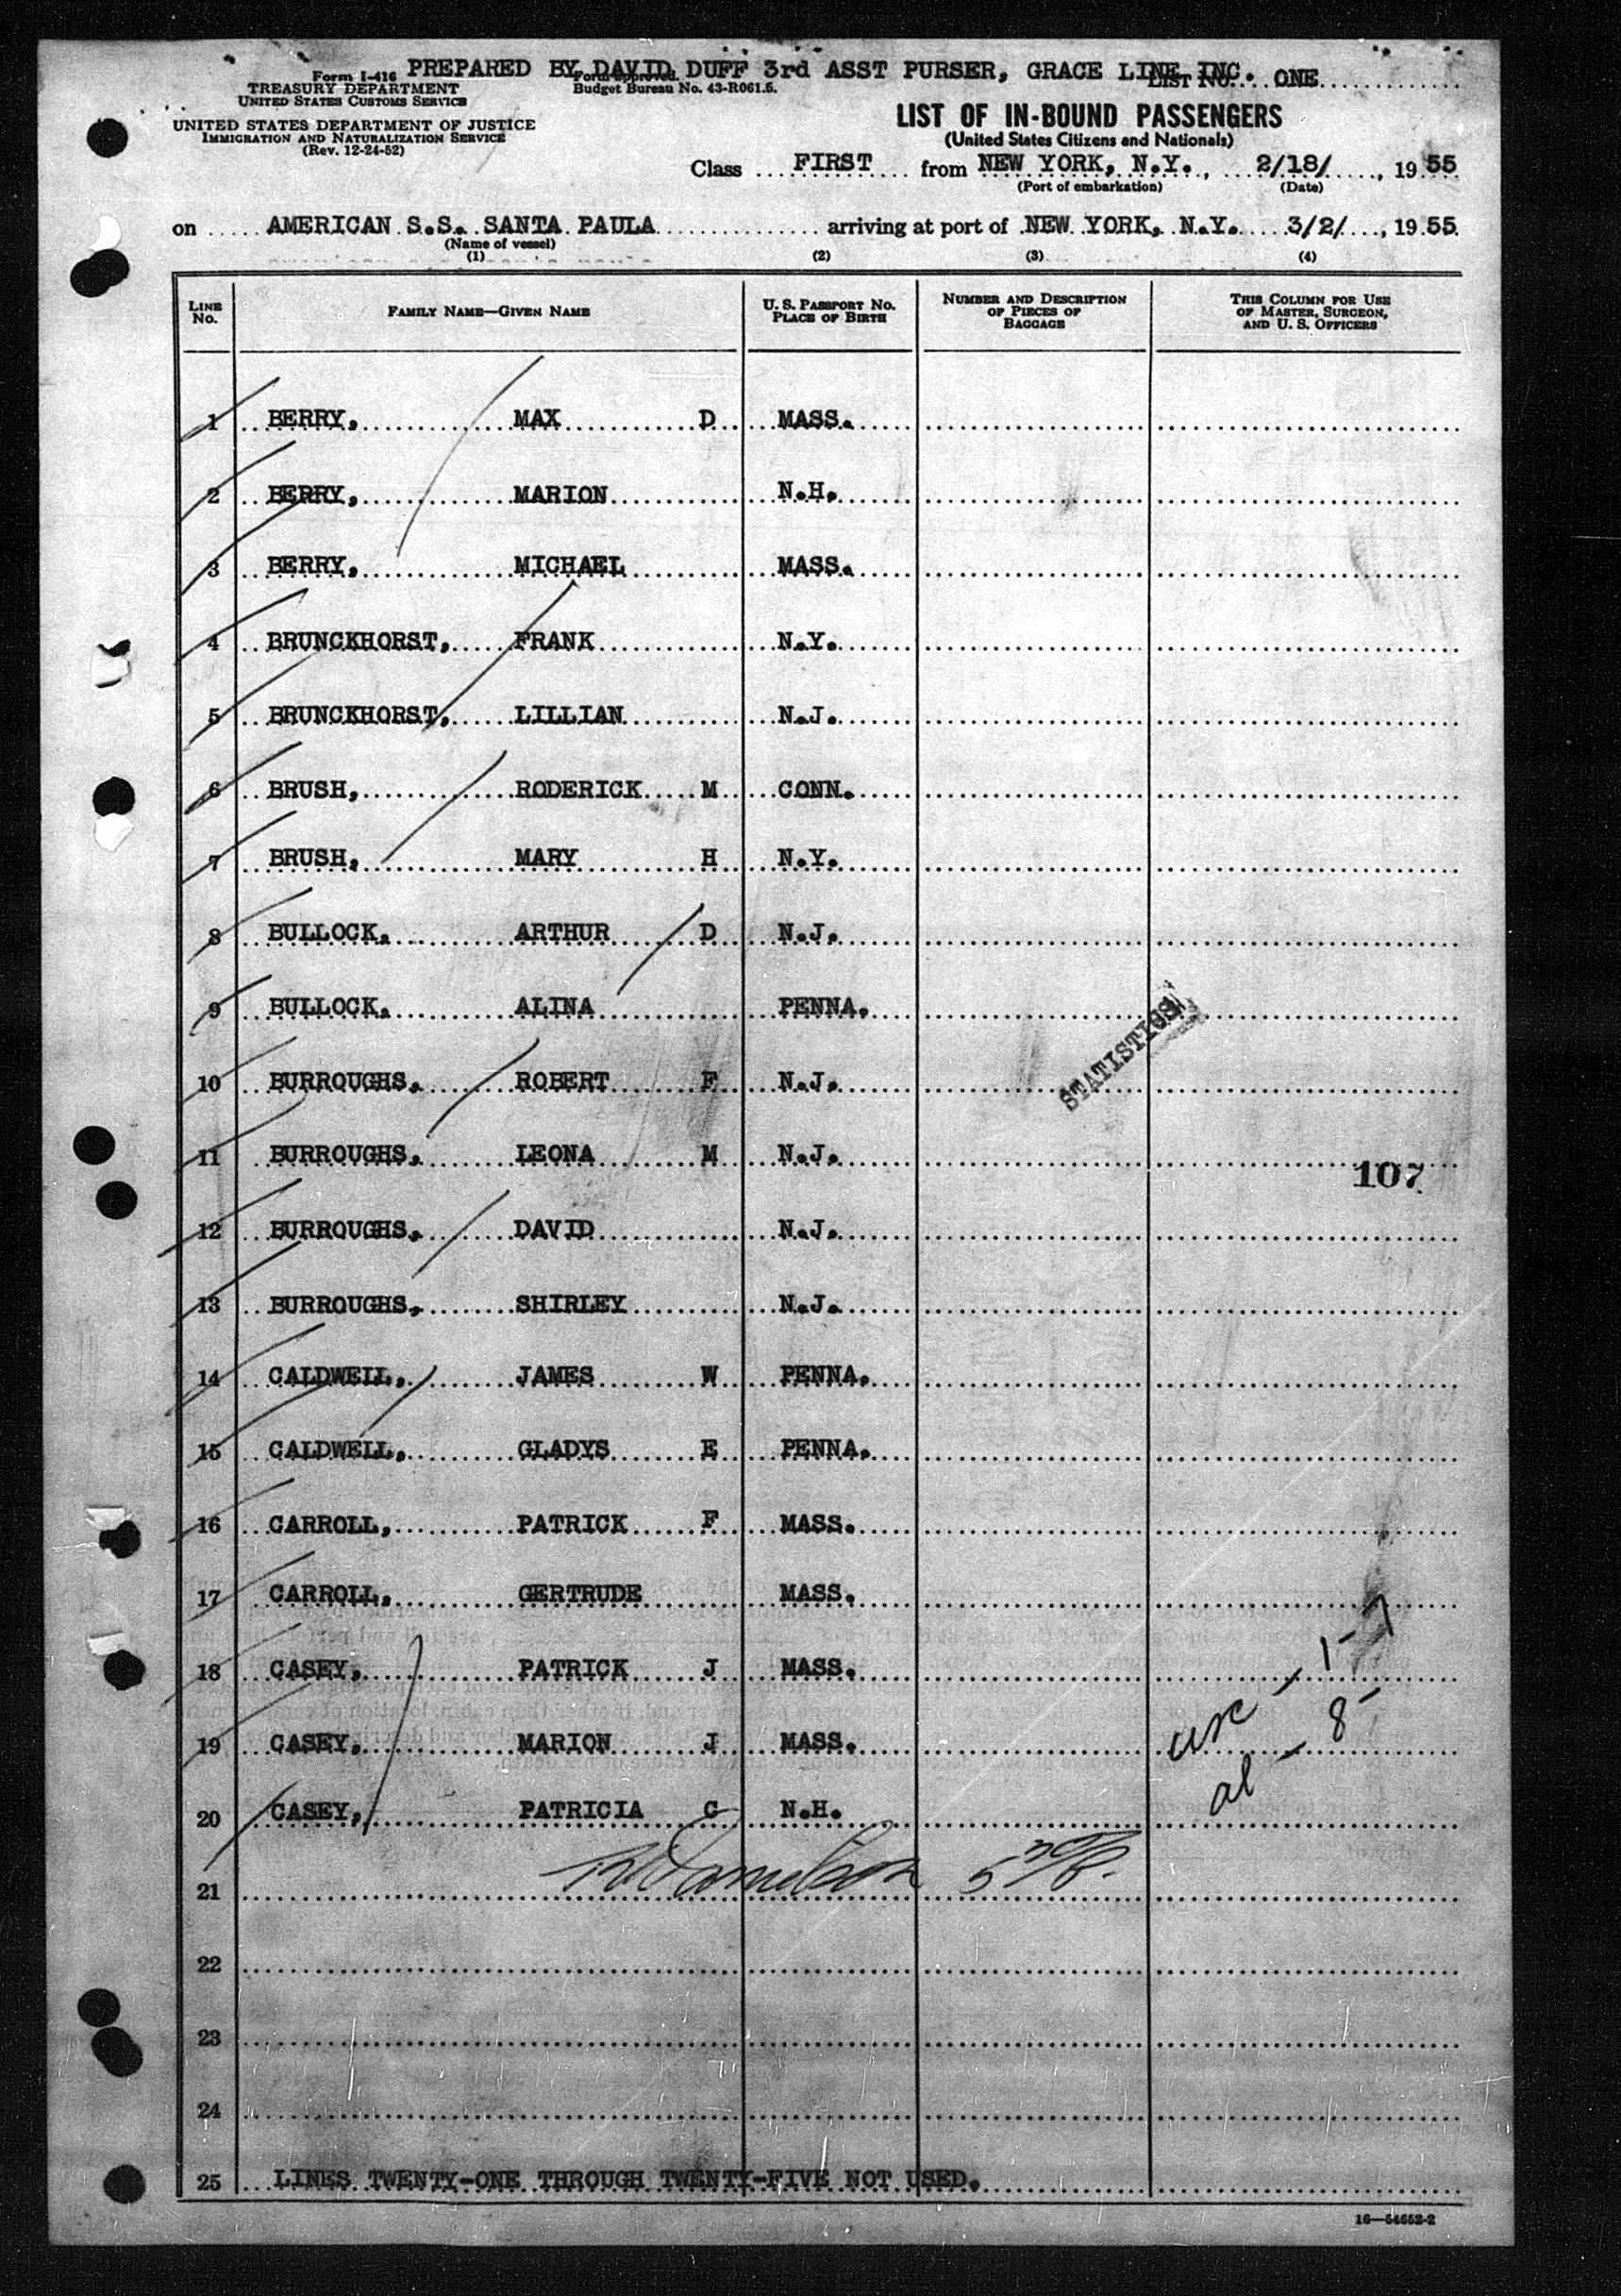 PREPARED BY DAVID DUFF 3rd ASST PURSER, GRACE LINE INC.
Form I-416
TREASURY DEPARTMENT
UNITED STATES CUSTOMS SERVICE
Form approved.
Budget Bureau No. 43-R061.5.
LIST NO. ONE
UNITED STATES DEPARTMENT OF JUSTICE
IMMIGRATION AND NATURALIZATION SERVICE
(Rev. 12-24-52)
LIST OF IN-BOUND PASSENGERS
(United States Citizens and Nationals)
Class FIRST from NEW YORK, N.Y., 2/18/, 1955
(Port of embarkation) (Date)
on AMERICAN S.S. SANTA PAULA arriving at port of NEW YORK, N.Y. 3/2/, 1955
(Name of vessel)
(1) (2) (3) (4)
LINE NO. FAMILY NAME—GIVEN NAME U. S. PASSPORT NO. PLACE OF BIRTH NUMBER AND DESCRIPTION OF PIECES OF BAGGAGE THIS COLUMN FOR USE OF MASTER, SURGEON, AND U. S. OFFICERS
1 BERRY, MAX D MASS.
2 BERRY, MARION N.H.
3 BERRY, MICHAEL MASS.
4 BRUNCKHORST, FRANK N.Y.
5 BRUNCKHORST, LILLIAN N.J.
6 BRUSH, RODERICK M CONN.
7 BRUSH, MARY H N.Y.
8 BULLOCK, ARTHUR D N.J.
9 BULLOCK, ALINA PENNA.
STATISTICS
10 BURROUGHS, ROBERT F N.J.
11 BURROUGHS, LEONA M N.J.
107
12 BURROUGHS, DAVID N.J.
13 BURROUGHS, SHIRLEY N.J.
14 CALDWELL, JAMES W PENNA.
15 CALDWELL, GLADYS E PENNA.
16 CARROLL, PATRICK F MASS.
17 CARROLL, GERTRUDE MASS.
18 CASEY, PATRICK J MASS.
19 CASEY, MARION J MASS.
usc - 1-7
al - 8-
20 CASEY, PATRICIA C N.H.
21
22
23
24
25 LINES TWENTY-ONE THROUGH TWENTY-FIVE NOT USED.
16—54652-2